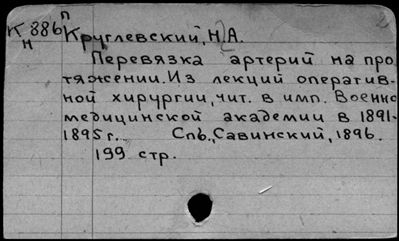 К 886 п
н
Круглевский, Н.А.
Перевязка артерий на про-
тяжении. Из лекций оператив-
ной хирургии, чит. в имп. Военно-
медицинской академии в 1891-
1895 г. Спб., Савинский, 1896.
199 стр.